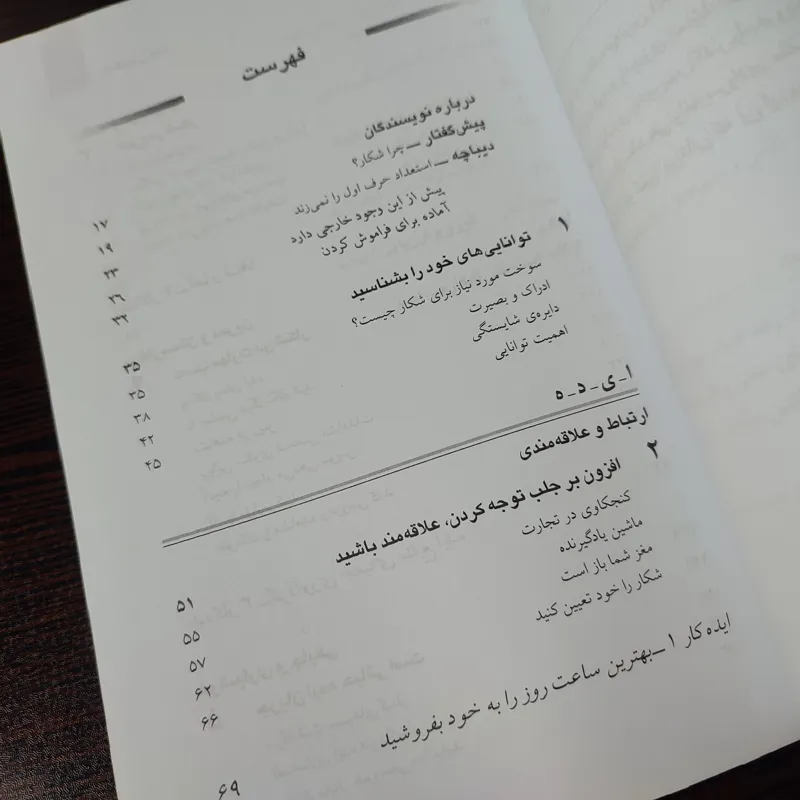 فهرست
درباره نویسندگان ۱۷
پیش‌گفتار ــ چرا شکار؟ ۱۹
دیباچه ــ استعداد حرف اول را نمی‌زند ۲۳
پیش از این وجود خارجی دارد ۲۶
آماده برای فراموش کردن ۳۲
۱ توانایی‌های خود را بشناسید ۳۵
سوخت مورد نیاز برای شکار چیست؟ ۳۵
ادراک و بصیرت ۳۸
دایره‌ی شایستگی ۴۲
اهمیت توانایی ۴۵
ا ـ ی ـ د ـ ه
ارتباط و علاقه‌مندی
۲ افزون بر جلب توجه کردن، علاقه‌مند باشید ۵۱
کنجکاوی در تجارت ۵۵
ماشین یادگیرنده ۵۷
مغز شما باز است ۶۲
شکار را خود تعیین کنید ۶۶
ایده کار ۱ ــ بهترین ساعت روز را به خود بفروشید ۶۹